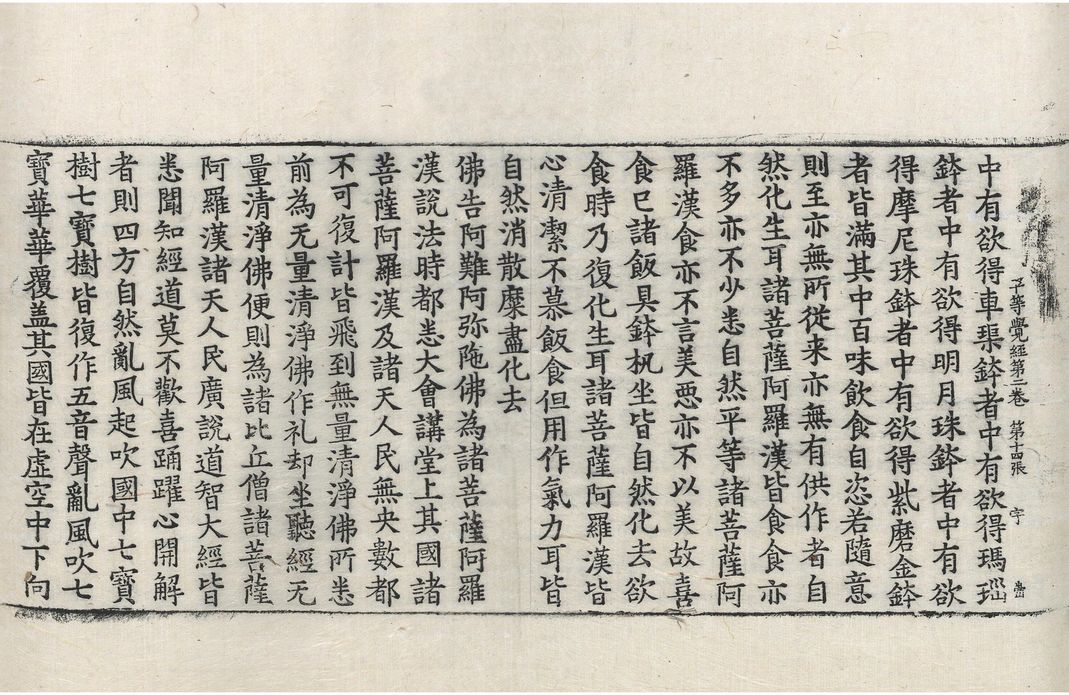 平等覺經第二卷　第十四張　字
中有欲得車渠鉢者中有欲得瑪瑙
鉢者中有欲得明月珠鉢者中有欲
得摩尼珠鉢者中有欲得紫磨金鉢
者皆滿其中百味飲食自恣若隨意
則至亦無所従来亦無有供作者自
然化生耳諸菩薩阿羅漢皆食食亦
不多亦不少悉自然平等諸菩薩阿
羅漢食亦不言美惡亦不以美故喜
食已諸飯具鉢机坐皆自然化去欲
食時乃復化生耳諸菩薩阿羅漢皆
心清潔不慕飯食但用作氣力耳皆
自然消散糜盡化去
佛告阿難阿弥陁佛為諸菩薩阿羅
漢說法時都悉大會講堂上其國諸
菩薩阿羅漢及諸天人民無央數都
不可復計皆飛到無量清淨佛所悉
前為无量清淨佛作礼却坐聽經无
量清淨佛便則為諸比丘僧諸菩薩
阿羅漢諸天人民廣說道智大經皆
悉聞知經道莫不歡喜踊躍心開解
者則四方自然亂風起吹國中七寶
樹七寶樹皆復作五音聲亂風吹七
寶華華覆盖其國皆在虛空中下向